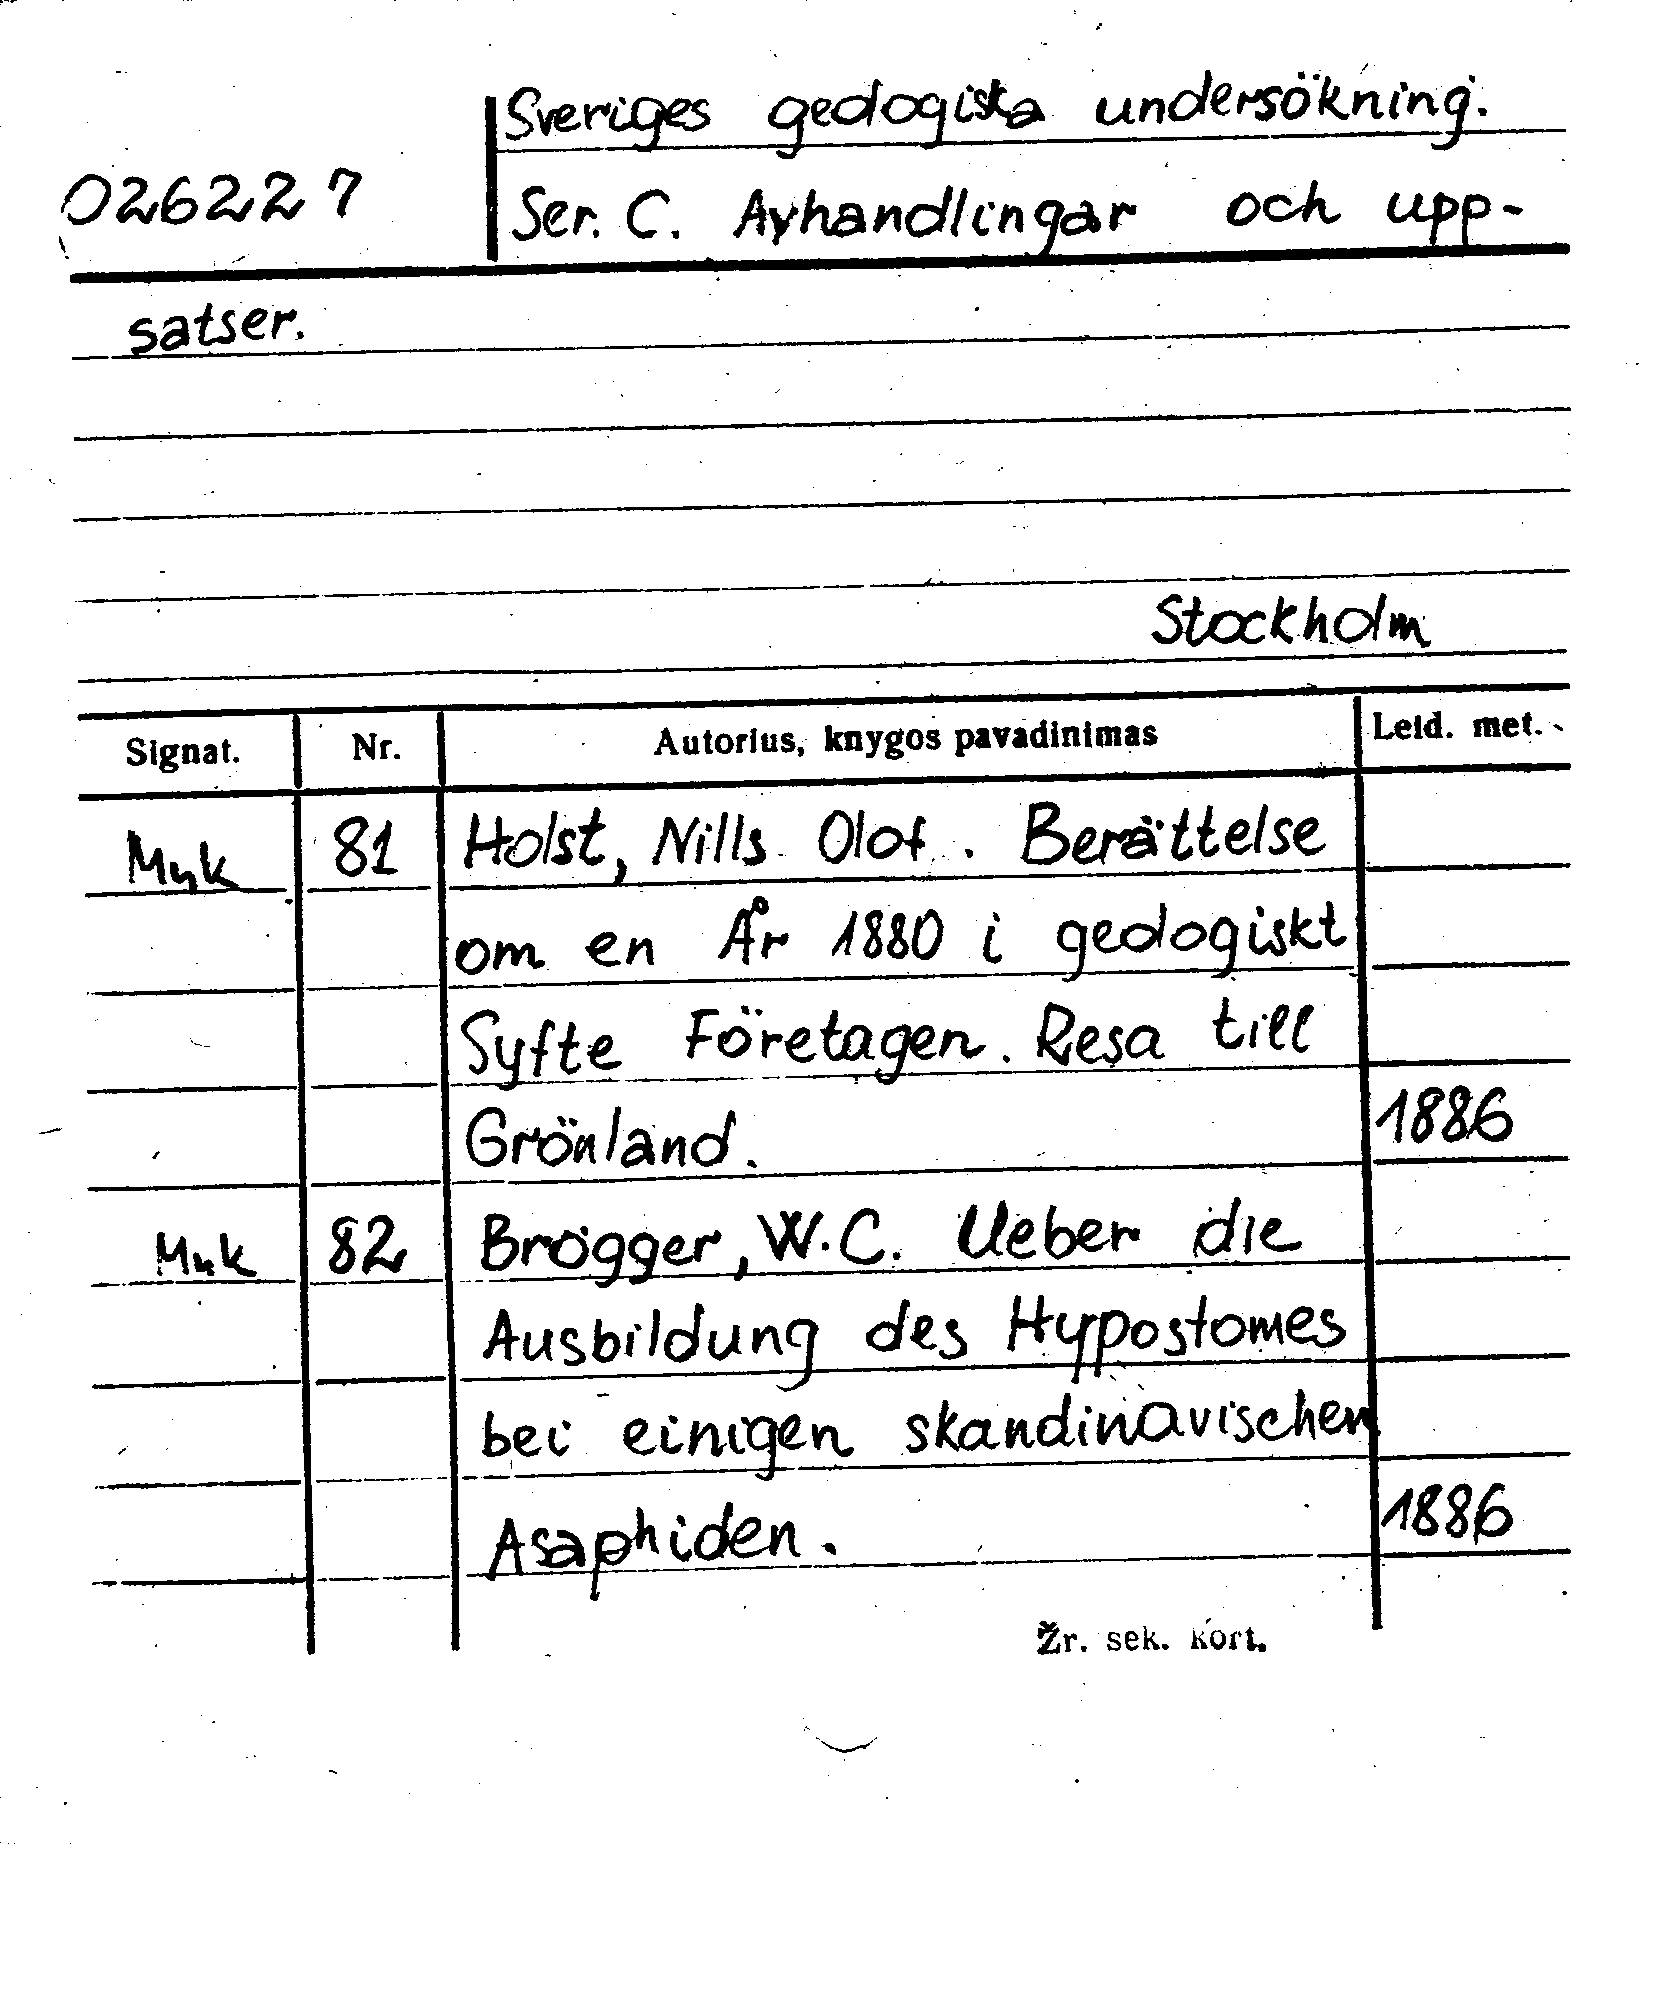 Sveriges geologiska undersökning.
026227
Ser. C. Avhandlingar och upp-
satser.
Stockholm
Signat. Nr. Autorius, knygos pavadinimas Leid. met.
Muk 81 Holst, Nills Olof. Berättelse
om en År 1880 i geologiskt
Syfte Företagen. Resa till
Grönland. 1886
Muk 82 Brögger, W.C. Ueber die
Ausbildung des Hypostomes
bei einigen skandinavischen
Asaphiden. 1886
Žr. sek. kort.